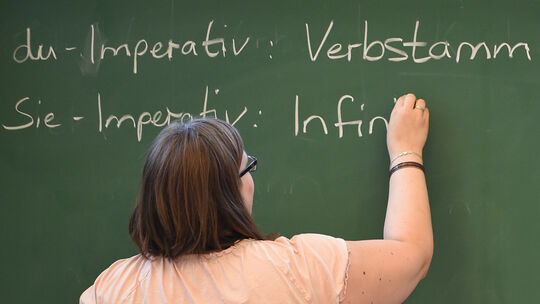 du-Imperativ: Verbstamm
Sie-Imperativ: Infin